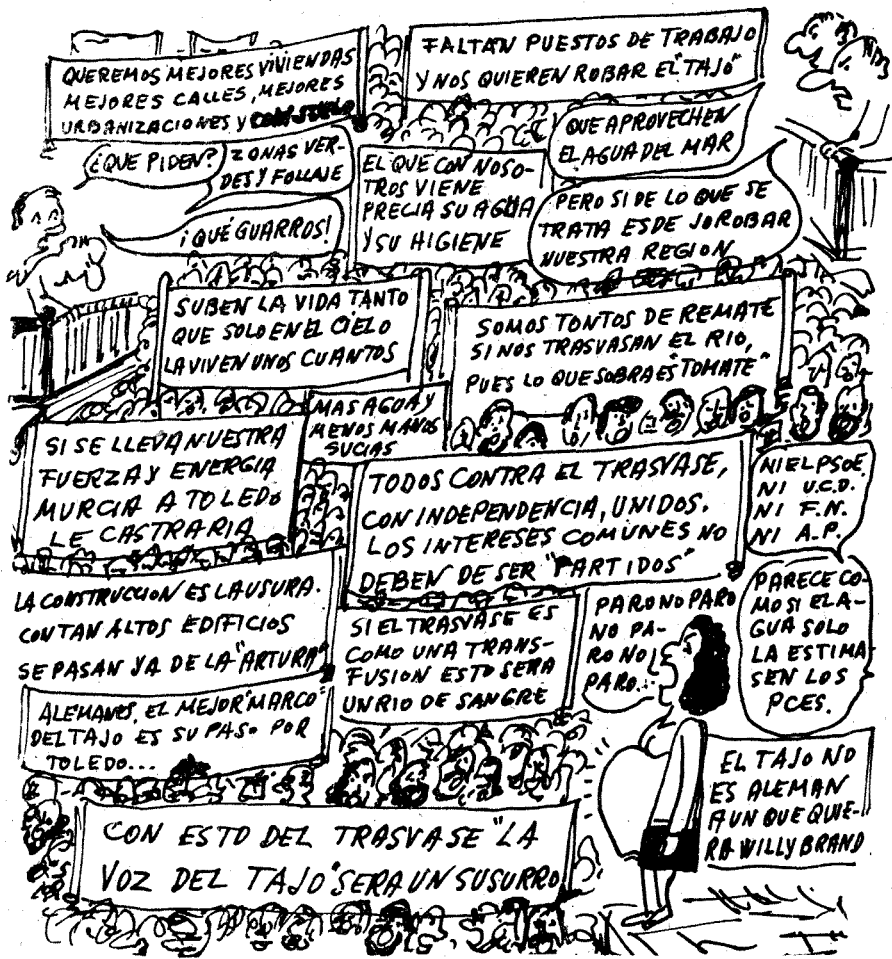 QUEREMOS MEJORES VIVIENDAS
MEJORES CALLES, MEJORES
URBANIZACIONES Y
FALTAN PUESTOS DE TRABAJO
Y NOS QUIEREN ROBAR EL "TAJO"
¿QUE PIDEN?
ZONAS VER-
DES Y FOLLAJE
¡QUÉ GUARROS!
EL QUE CON NOSO-
TROS VIENE
PRECIA SU AGUA
Y SU HIGIENE
QUE APROVECHEN
EL AGUA DEL MAR
PERO SI DE LO QUE SE
TRATA ES DE JOROBAR
NUESTRA REGION
SUBEN LA VIDA TANTO
QUE SOLO EN EL CIELO
LA VIVEN UNOS CUANTOS
SOMOS TONTOS DE REMATE
SI NOS TRASVASAN EL RIO,
PUES LO QUE SOBRA ES "TOMATE"
MAS AGUA Y
MENOS MANOS
SUCIAS
SI SE LLEVA NUESTRA
FUERZA Y ENERGIA
MURCIA A TOLEDO
LE CASTRARIA
TODOS CONTRA EL TRASVASE,
CON INDEPENDENCIA, UNIDOS.
LOS INTERESES COMUNES NO
DEBEN DE SER "PARTIDOS"
NI EL PSOE,
NI U.C.D.
NI F.N.
NI A.P.
PARECE CO-
MO SI EL A-
GUA SOLO
LA ESTIMA-
SEN LOS
PCES.
LA CONSTRUCCION ES LA USURA.
CON TAN ALTOS EDIFICIOS
SE PASAN YA DE LA "ARTURA"
SI EL TRASVASE ES
COMO UNA TRANS-
FUSION ESTO SERA
UN RIO DE SANGRE
PARO NO PARO
NO PA-
RO NO
PARO...
ALEMANES, EL MEJOR "MARCO"
DEL TAJO ES SU PASO POR
TOLEDO...
EL TAJO NO
ES ALEMAN
AUNQUE QUIE-
RA WILLY BRAND
CON ESTO DEL TRASVASE "LA
VOZ DEL TAJO" SERA UN SUSURRO